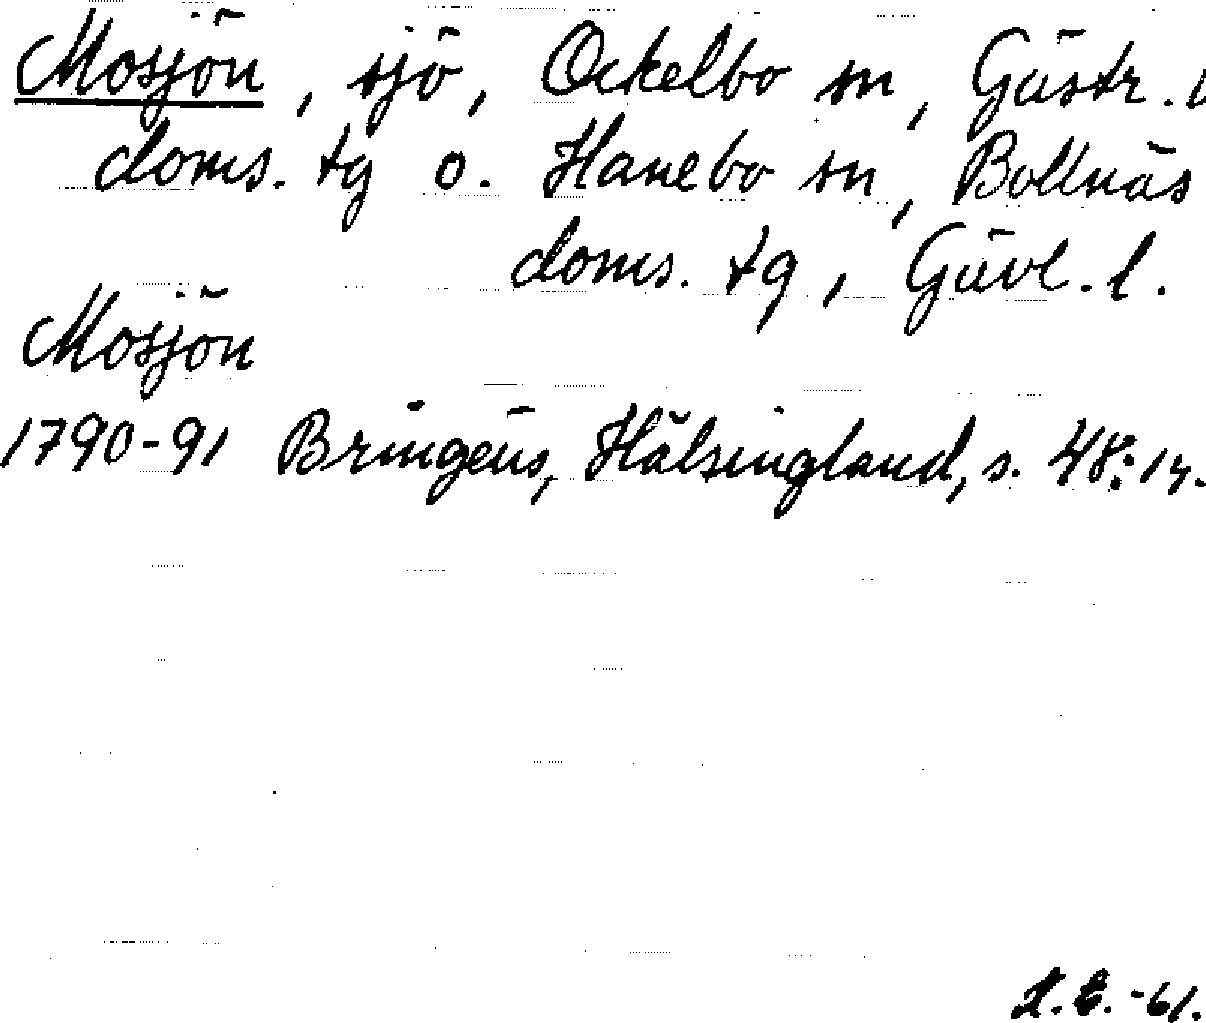 Mosjön, sjö, Ockelbo sn, Gästr.
doms. tg o. Hanebo sn, Bollnäs
doms. tg, Gävl. l.
Mosjön
1790-91 Bringéus, Hälsingland, s. 48:
-61.